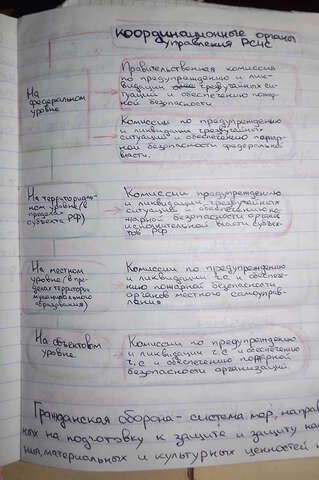 координационные органы
управления РСЧС
На
федеральном
уровне
Правительственная комиссия
по предупреждению и лик-
видации чрезвычайных си-
туаций и обеспечению пожар-
ной безопасности
Комиссии по предупреждению
и ликвидации чрезвычайных
ситуаций и обеспечению пожар-
ной безопасности федеральной
власти.
На территориаль-
ном уровне (в
пределах
субъекта РФ)
Комиссии предупреждению
и ликвидации чрезвычайных
ситуаций и обеспечению по-
жарной безопасности органов
исполнительной власти субъек-
тов РФ
На местном
уровне (в пре-
делах территории
муниципального
образования)
Комиссии по предупреждению
и ликвидации ч.с и обеспе-
чению пожарной безопасности
органов местного самоуправ-
ления
На объектовом
уровне
Комиссии по предупреждению
и ликвидации ч.с и обеспечению
ч.с и обеспечению пожарной
безопасности организаций.
Гражданская оборона - система мер, направ
ных на подготовку к защите и защиту нас
ния, материальных и культурных ценностей н